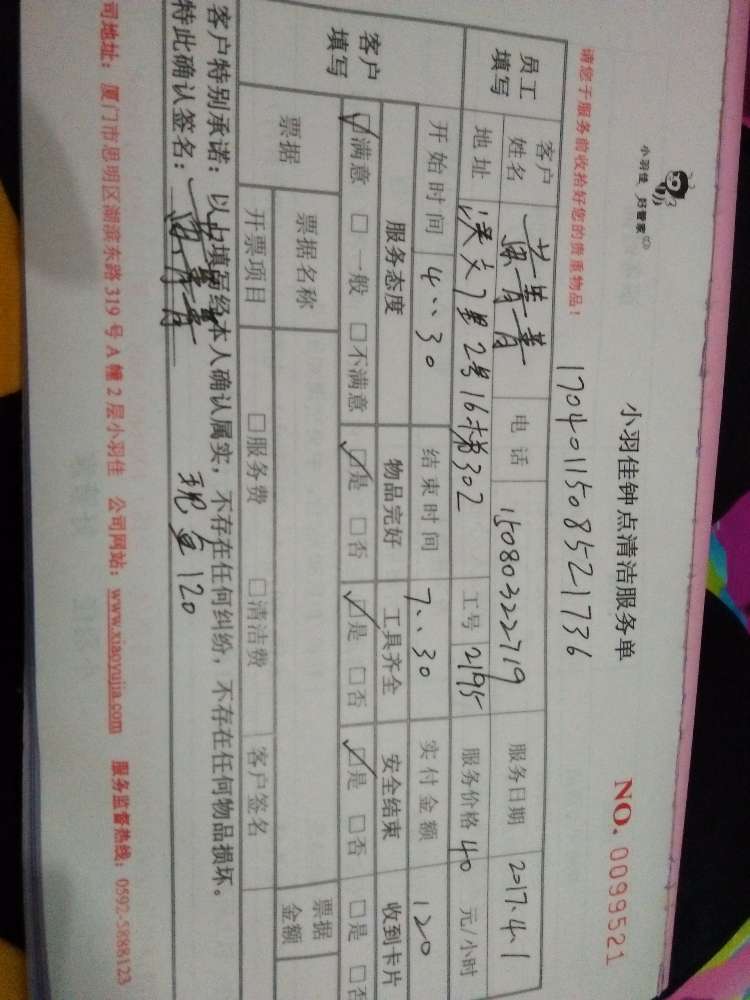 小羽佳 归管家
小羽佳钟点清洁服务单
NO. 0099521
请您于服务前收拾好您的贵重物品！
170401150852​1736
员工填写 客户姓名 电话 15080322719 服务日期 2017.4.1
地址 2号16梯302 工号 2195 服务价格 40 元/小时
开始时间 4..30 结束时间 7..30 实付金额 120
客户填写 服务态度 物品完好 工具齐全 安全结束 收到卡片
☑满意 □一般 □不满意 ☑是 □否 ☑是 □否 ☑是 □否 □是 □否
票据 票据名称 票据金额
开票项目 □服务费 □清洁费 客户签名
客户特别承诺：以上填写经本人确认属实，不存在任何纠纷，不存在任何物品损坏。
特此确认签名： 现金120
司地址：厦门市思明区湖滨东路319号A幢2层小羽佳 公司网站：www.xiaoyujia.com 服务监督热线：0592-5888123